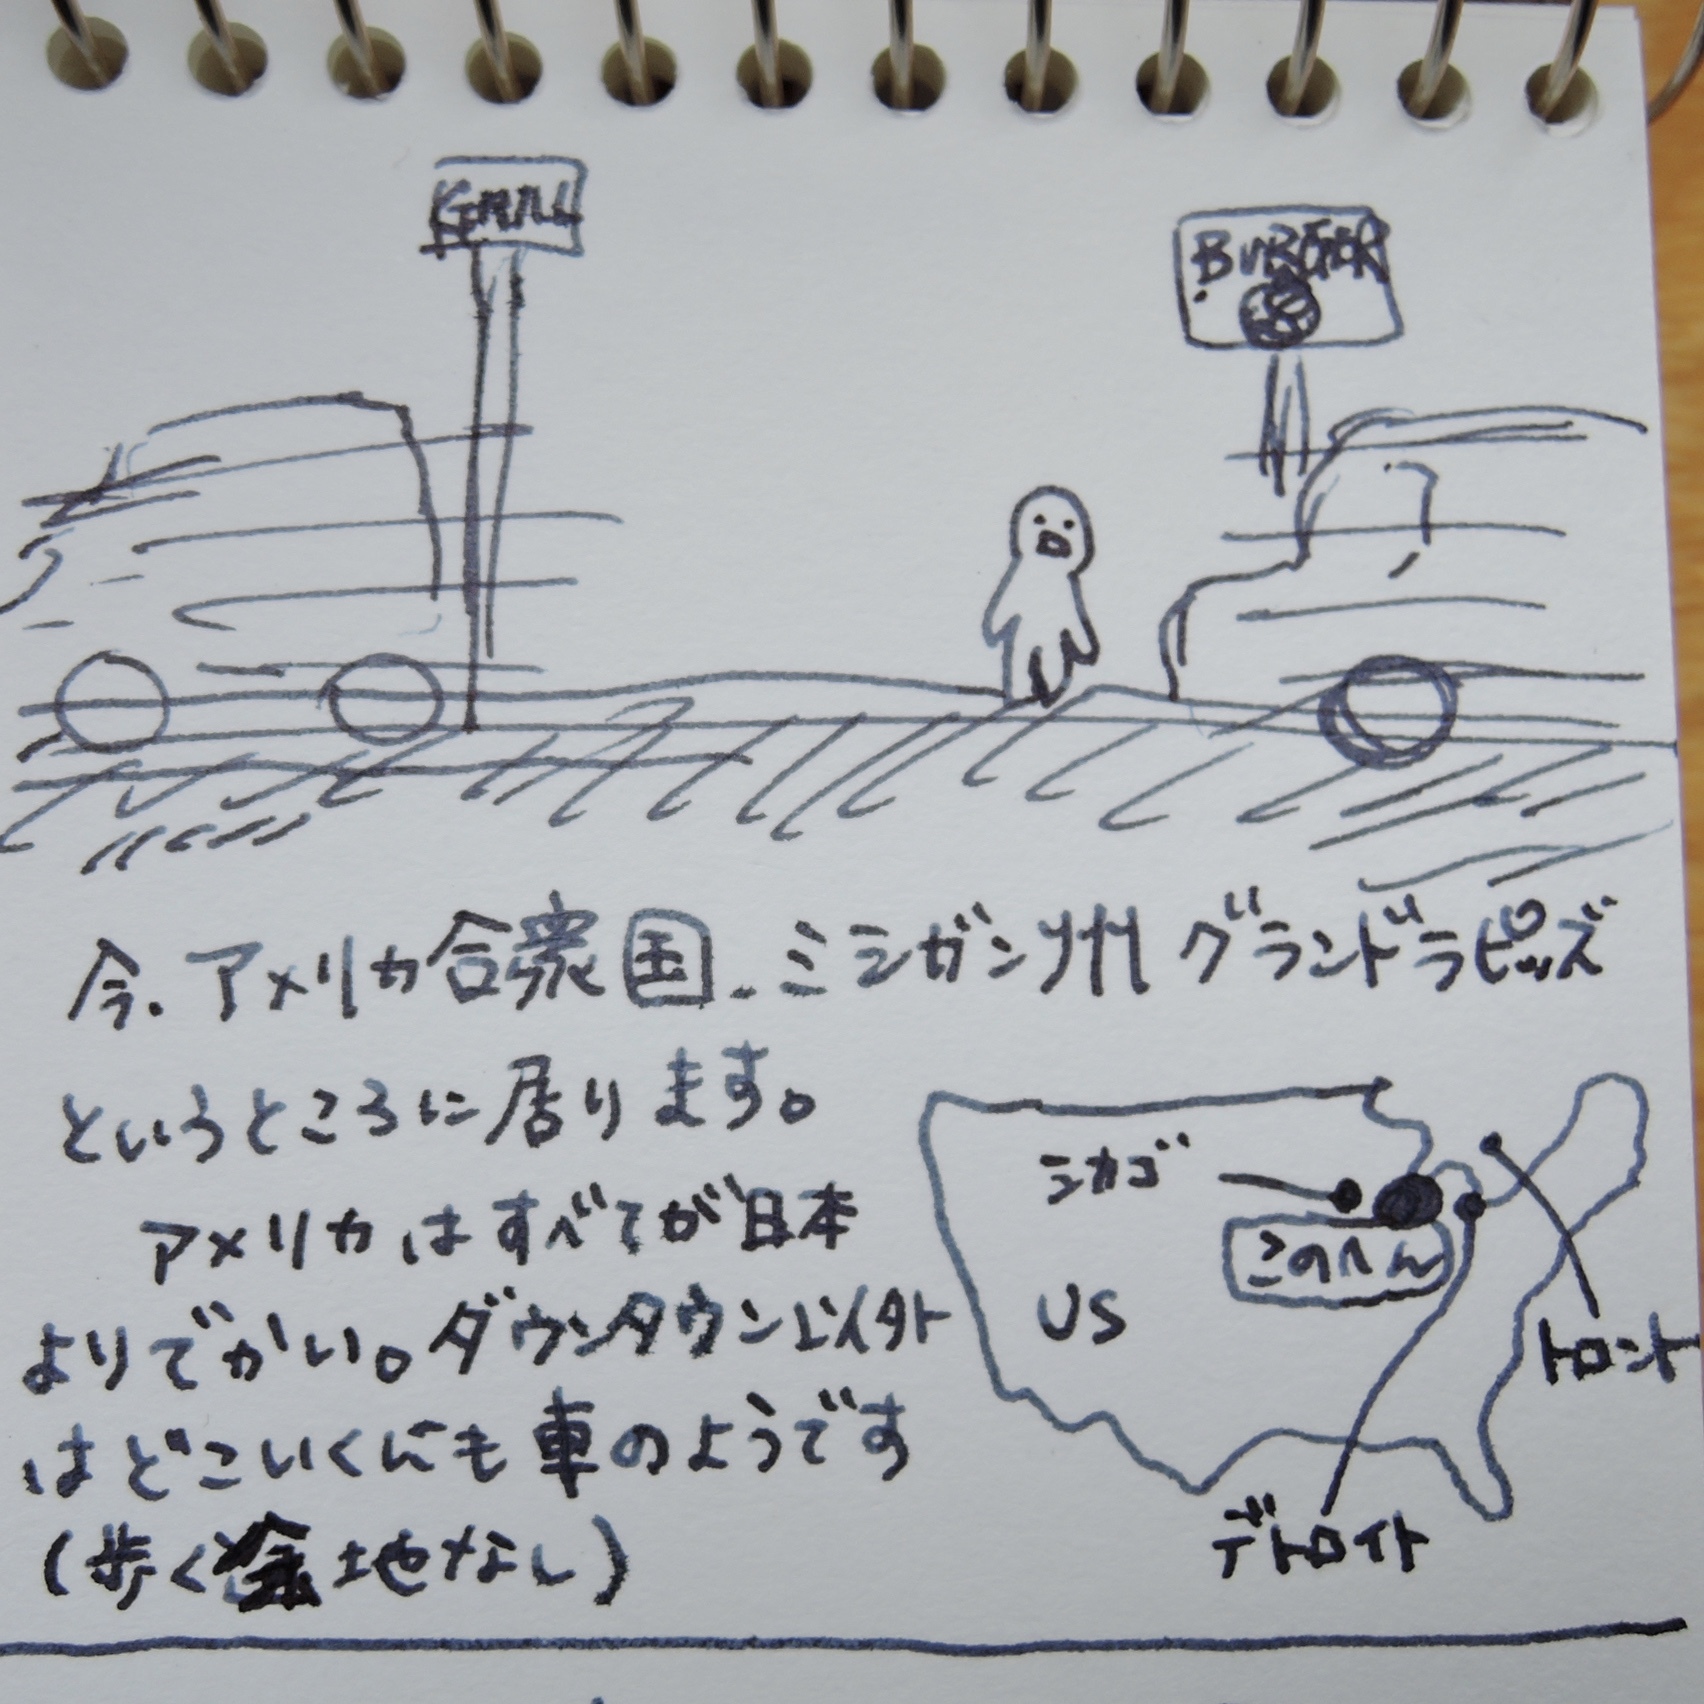 BURGER
今、アメリカ合衆国、ミシガン州グランドラピッズ
というところに居ります。
アメリカはすべてが日本
よりでかい。ダウンタウン以外
はどこいくにも車のようです
(歩く余地なし)
シカゴ
このへん
US
トロント
デトロイト